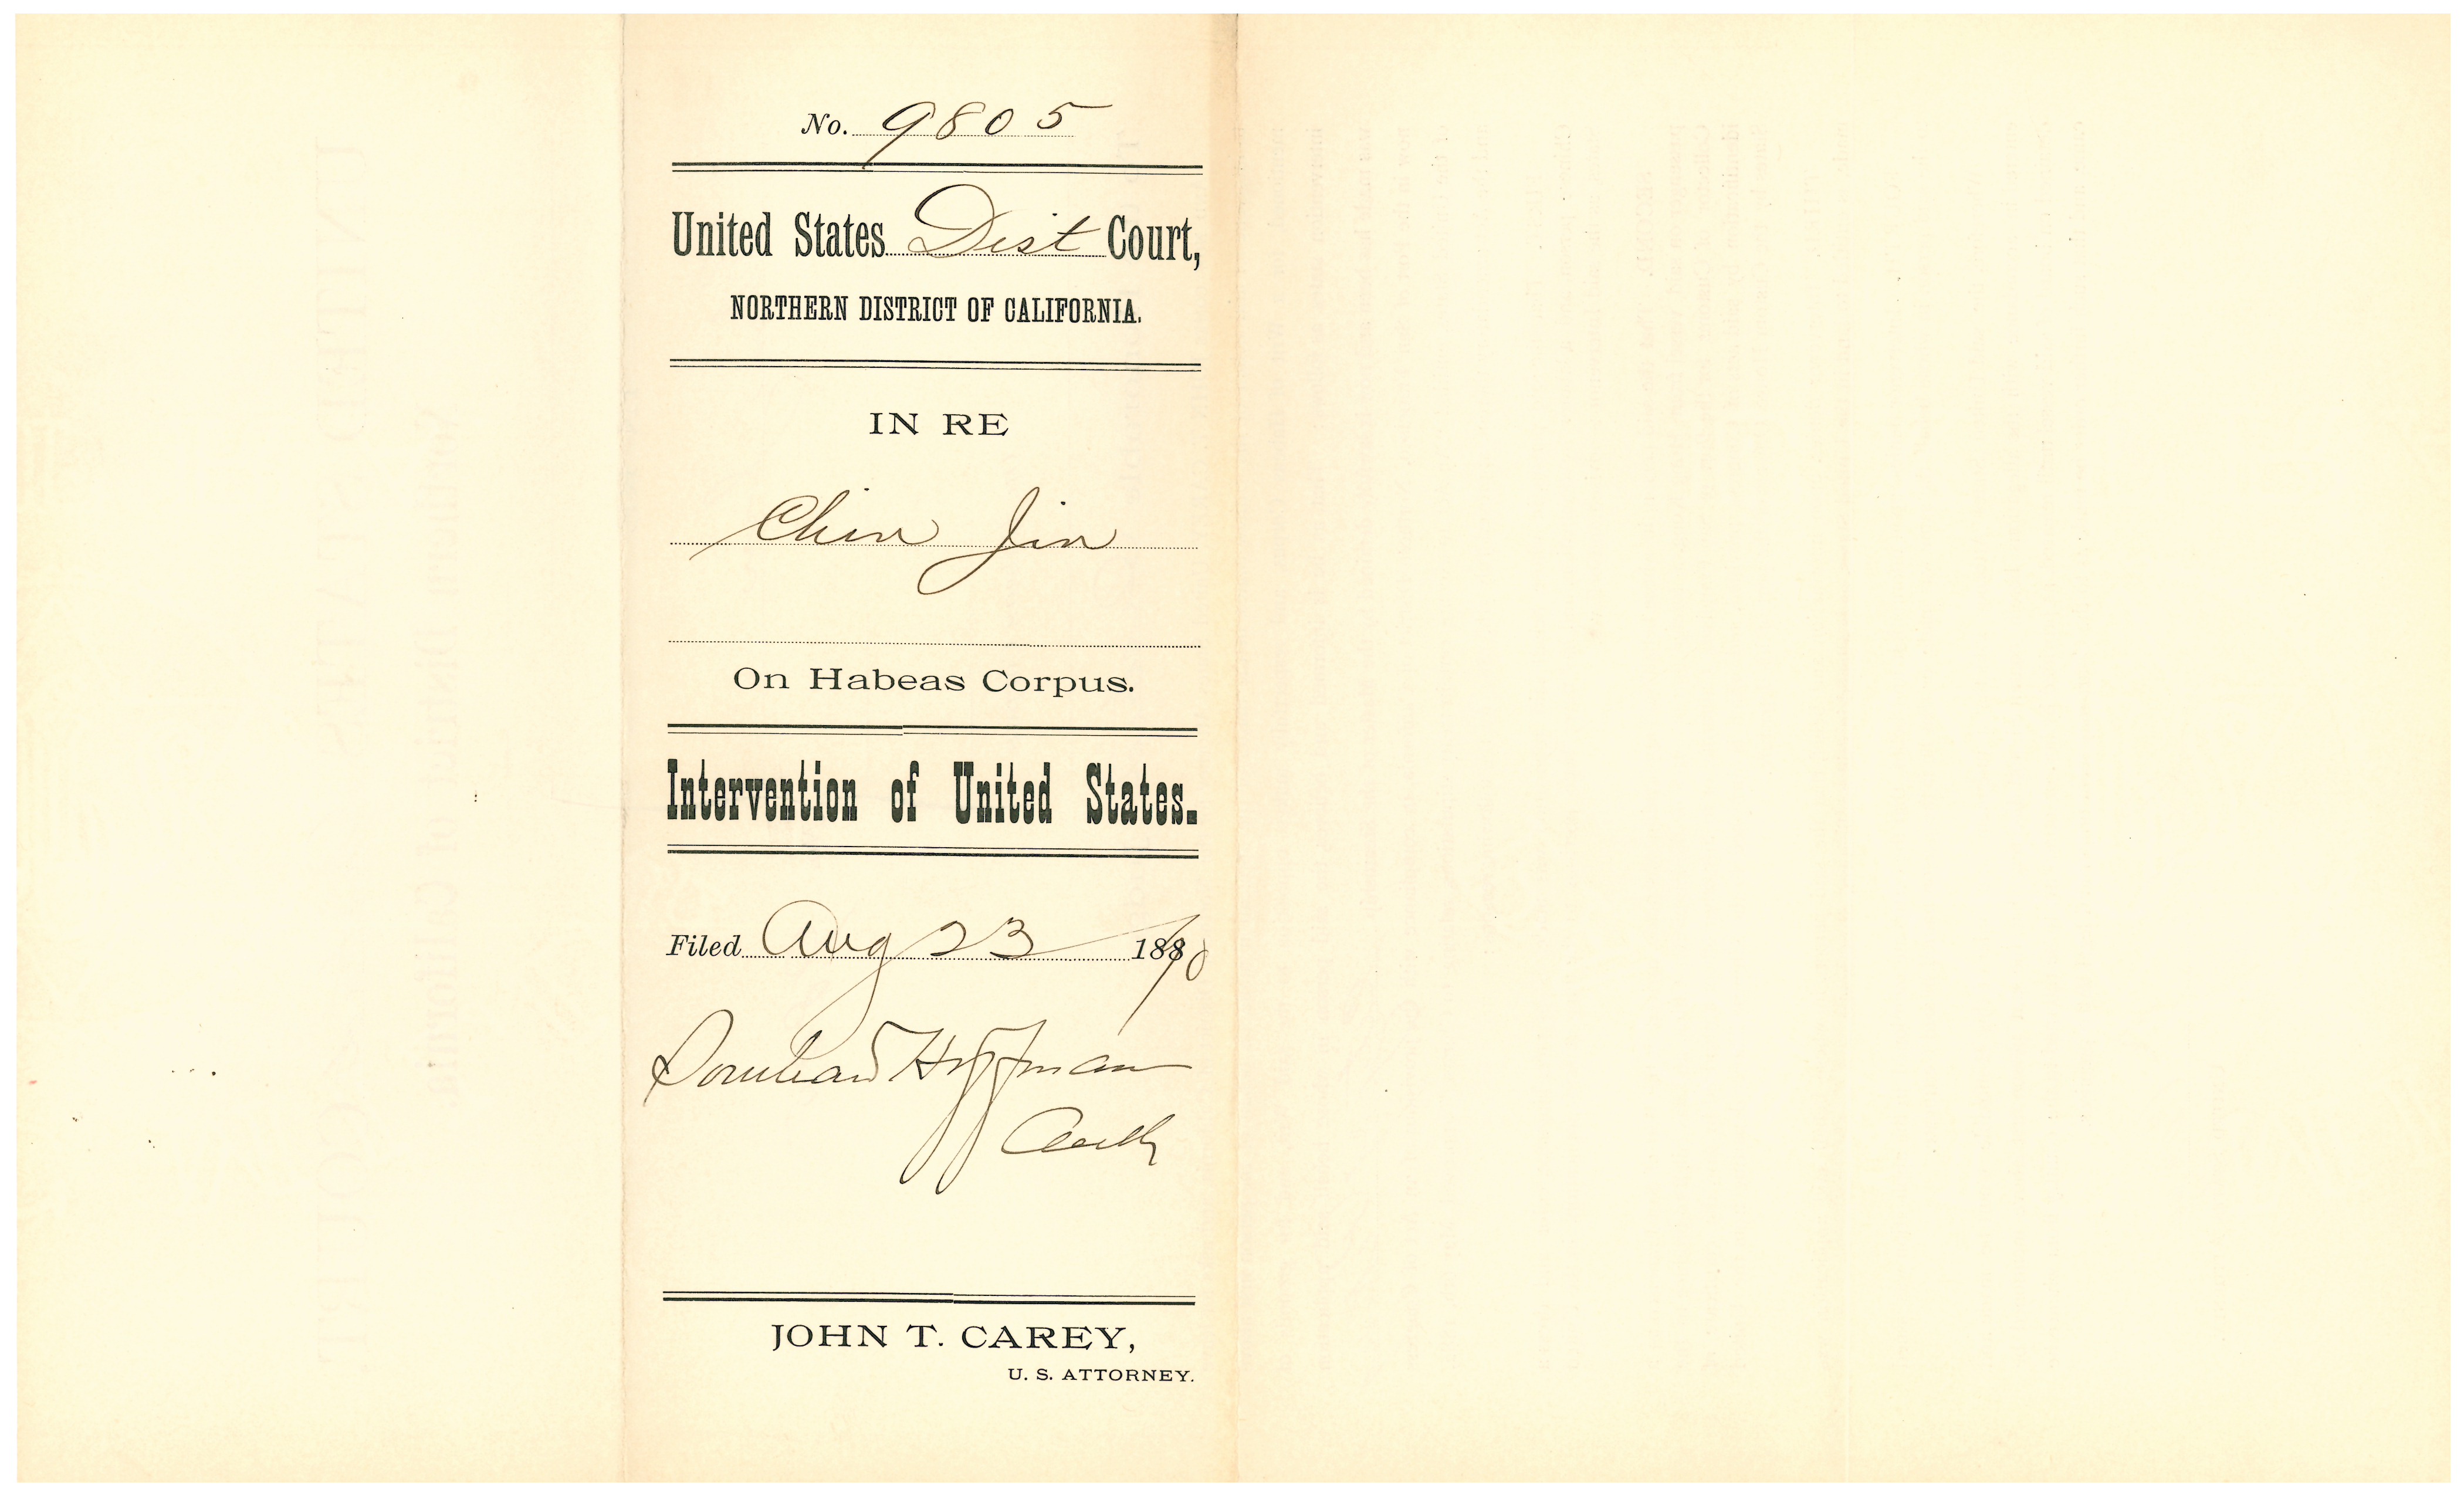 No. 9805
United States Dist Court,
NORTHERN DISTRICT OF CALIFORNIA.
IN RE
Chin Jin
On Habeas Corpus.
Intervention of United States.
Filed Aug 23 1890
Southard Hoffman
Clerk
JOHN T. CAREY,
U. S. ATTORNEY.